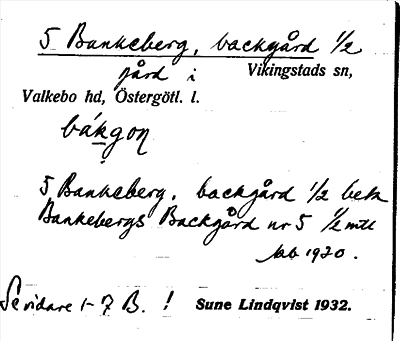 5 Bankeberg, backgård 1/2
gård i Vikingstads sn,
Valkebo hd, Östergötl. l.
bákgoṇ
5 Bankeberg, backgård 1/2 bet
Bankebergs Backgård nr 5 1/2 mtl
jbb 1920.
Se vidare 1-7 B. ! Sune Lindqvist 1932.